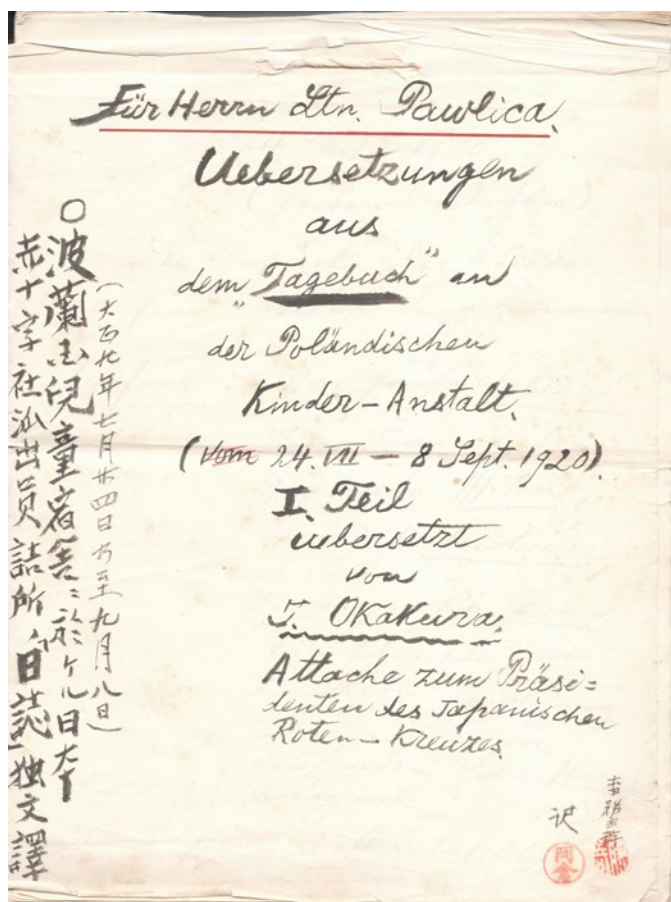 Für Herrn Ltn. Pawlica.
Uebersetzungen
aus
dem „Tagebuch“ an
der Poländischen
Kinder-Anstalt.
(vom 24. VII — 8 Sept. 1920)
I. Teil
uebersetzt
von
T. Okakura.
Attache zum Präsi=
denten des Japanischen
Roten-Kreuzes.
○波蘭国児童宿舎ニ於ケル日本
赤十字社派出員詰所ノ日誌独文譯
(大正九年七月廿四日乃至九月八日)
訳
岡倉